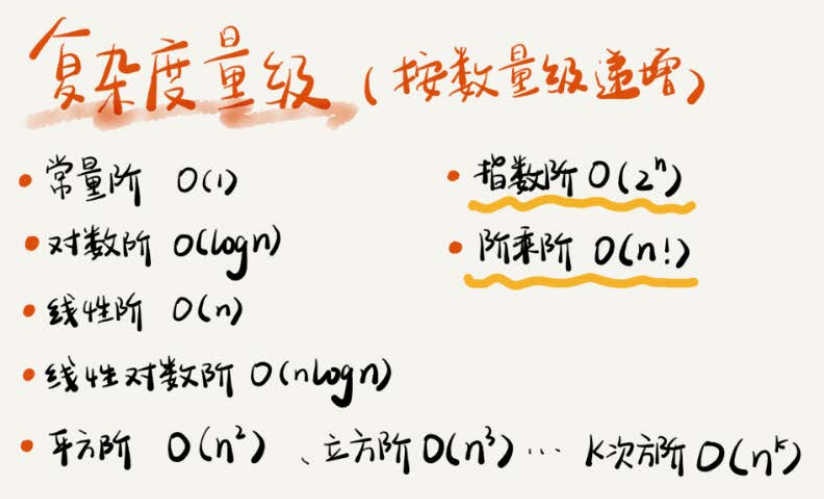 复杂度量级（按数量级递增）
• 常量阶 O(1)
• 对数阶 O(logn)
• 线性阶 O(n)
• 线性对数阶 O(nlogn)
• 平方阶 O(n²)、立方阶 O(n³) … K次方阶 O(nᵏ)
• 指数阶 O(2ⁿ)
• 阶乘阶 O(n!)